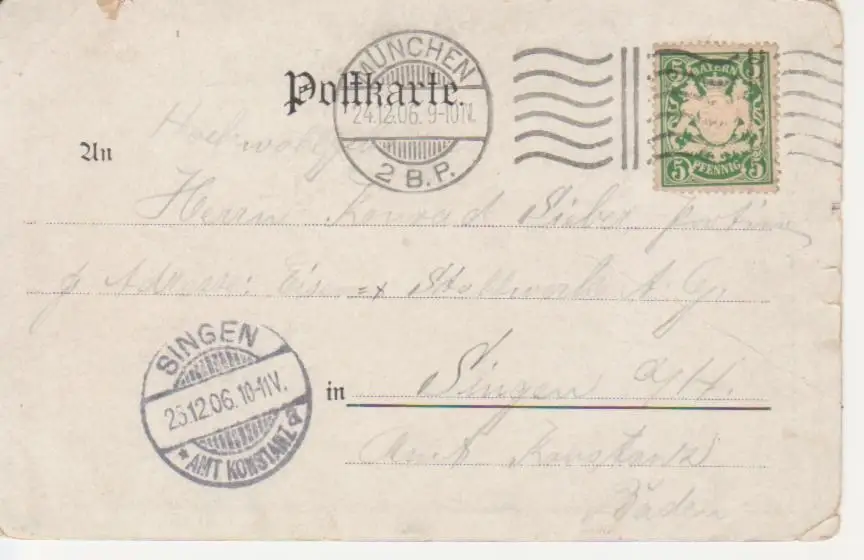 Postkarte.
MÜNCHEN
24.12.06. 9-10 N.
2 B.P.
BAYERN
5 5
5 5
PFENNIG
An
Herrn Konrad Sieber
Adresse: Eisen = & Stahlwerke A. G.
SINGEN
25.12.06. 10-11V.
* AMT KONSTANZ
in Singen a/H.
Amt Konstanz
Baden